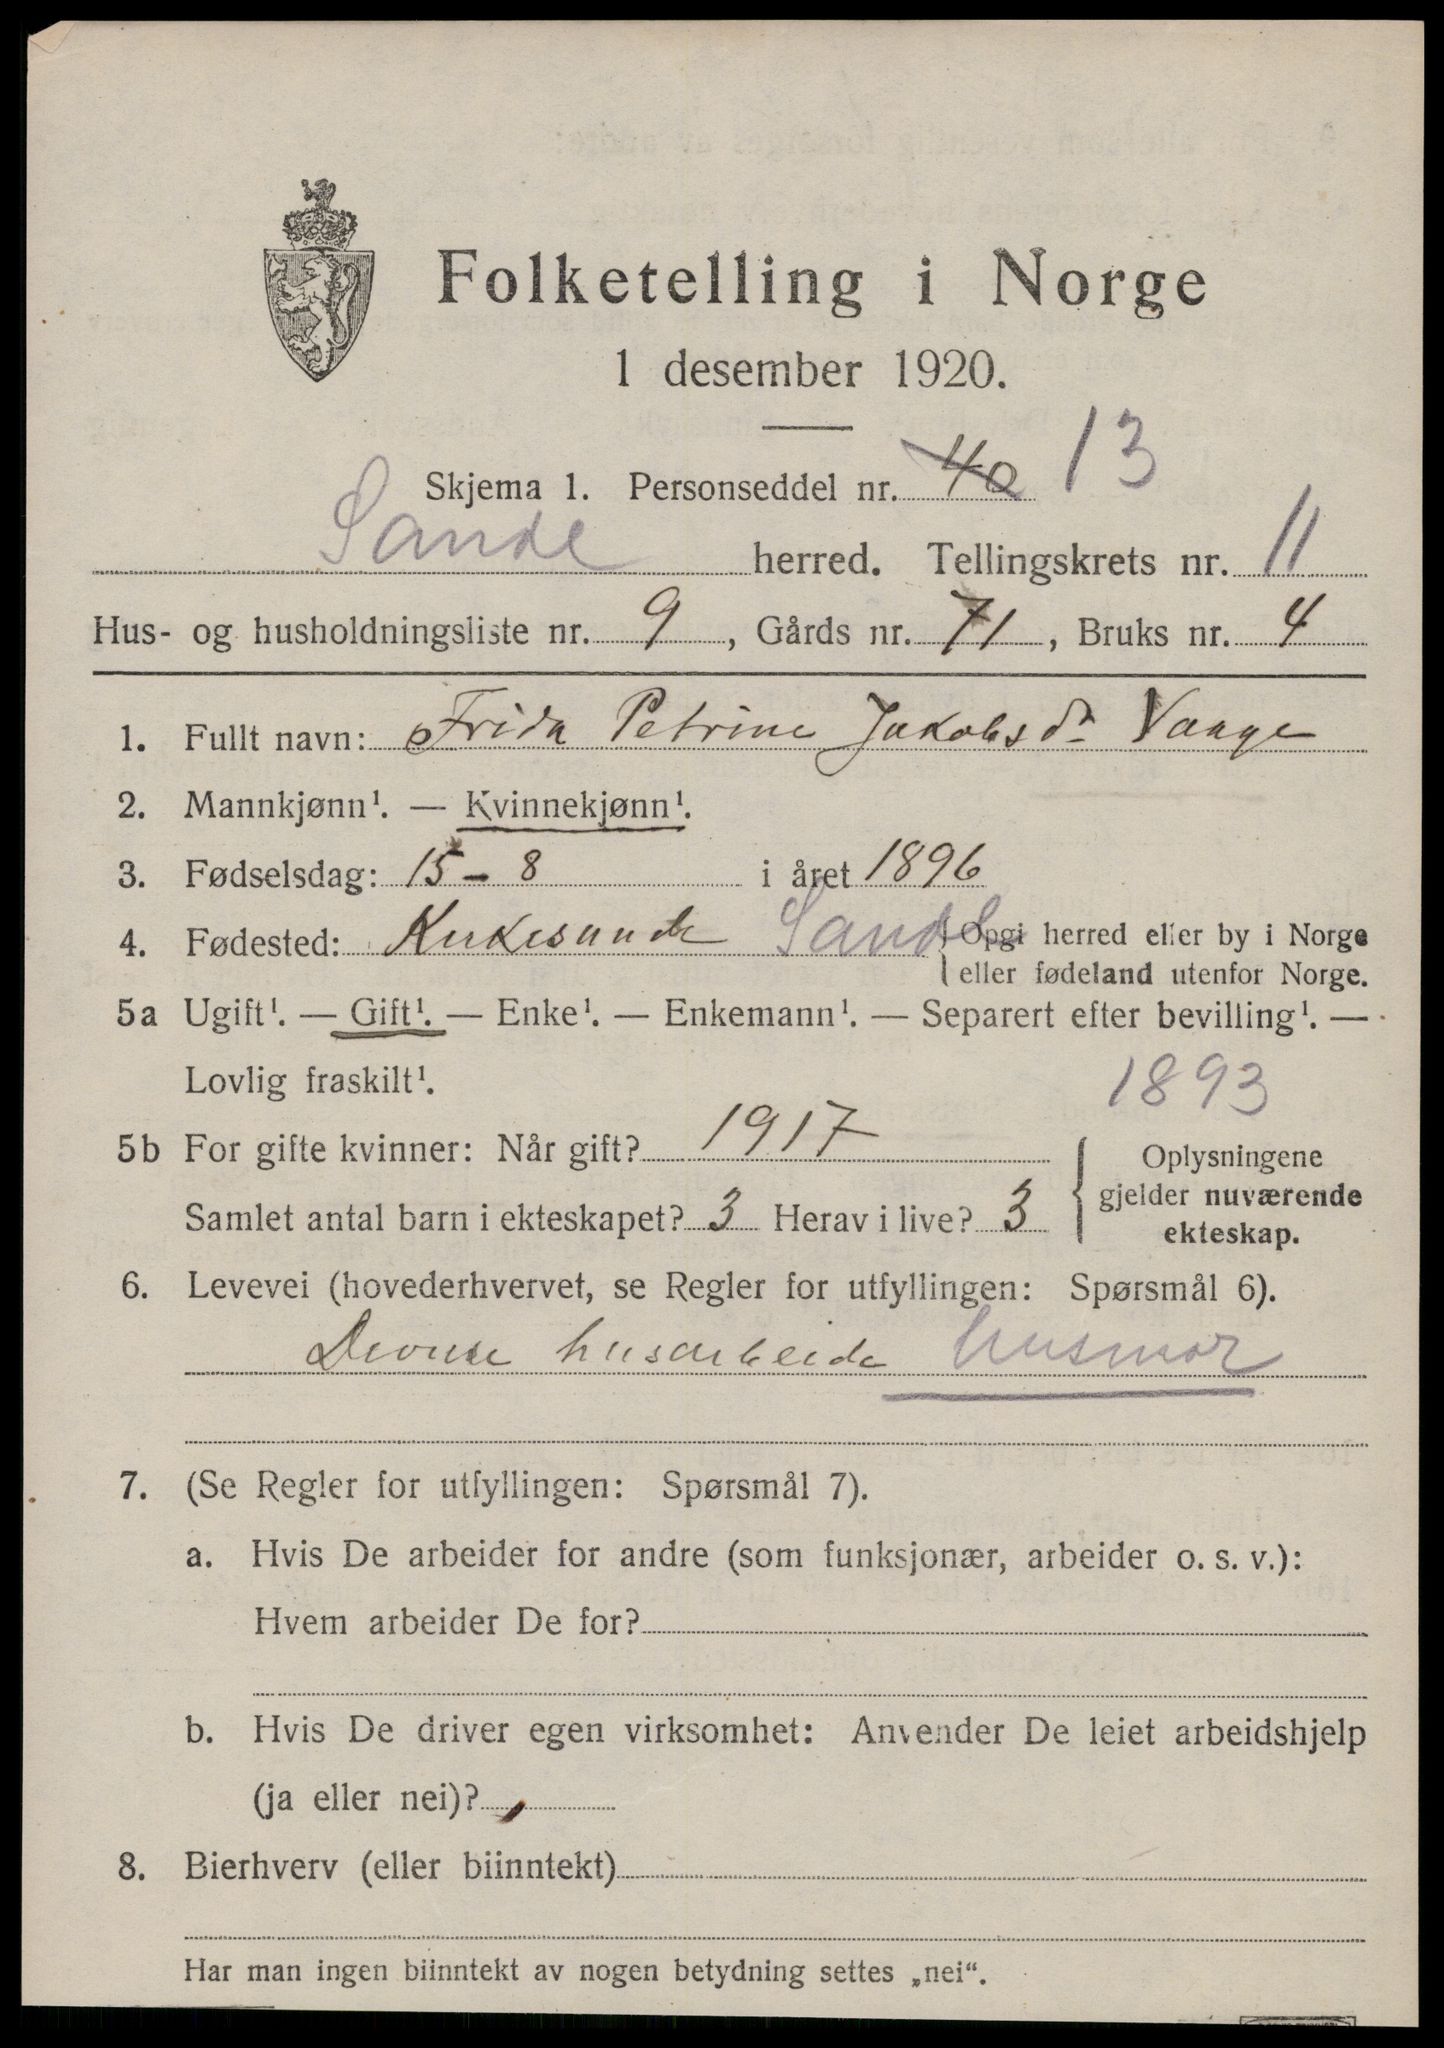 Folketelling i Norge
1 desember 1920.
Skjema 1. Personseddel nr. 40 13
Sande herred. Tellingskrets nr. 11
Hus- og husholdningsliste nr. 9, Gårds nr. 71, Bruks nr. 4
1. Fullt navn: Frida Petrine Jakobsdr Vaage
2. Mannkjønn¹. — Kvinnekjønn¹.
3. Fødselsdag: 15 - 8 i året 1896
4. Fødested: Sande { Opgi herred eller by i Norge
eller fødeland utenfor Norge.
5a Ugift¹. — Gift¹. — Enke¹. — Enkemann¹. — Separert efter bevilling¹. —
Lovlig fraskilt¹. 1893
5b For gifte kvinner: Når gift? 1917 Oplysningene
gjelder nuværende
Samlet antal barn i ekteskapet? 3 Herav i live? 3 ekteskap.
6. Levevei (hovederhvervet, se Regler for utfyllingen: Spørsmål 6).
husarbeide husmor
7. (Se Regler for utfyllingen: Spørsmål 7).
a. Hvis De arbeider for andre (som funksjonær, arbeider o. s. v.):
Hvem arbeider De for?
b. Hvis De driver egen virksomhet: Anvender De leiet arbeidshjelp
(ja eller nei)?
8. Bierhverv (eller biinntekt)
Har man ingen biinntekt av nogen betydning settes „nei“.